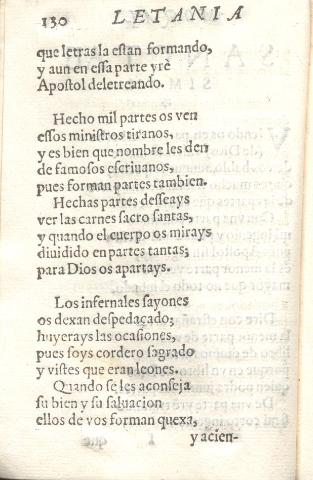 130 LETANIA
que letras la estan formando,
y aun en essa parte yrè
Apostol deletreando.
Hecho mil partes os ven
essos ministros tiranos,
y es bien que nombre les den
de famosos escriuanos,
pues forman partes tambien.
Hechas partes desseays
ver las carnes sacro santas,
y quando el cuerpo os mirays
diuidido en partes tantas;
para Dios os apartays.
Los infernales sayones
os dexan despedaçado;
huyerays las ocasiones,
pues soys cordero sagrado
y vistes que eran leones.
Quando se les aconseja
su bien y su saluacion
ellos de vos forman quexa,
y acien-